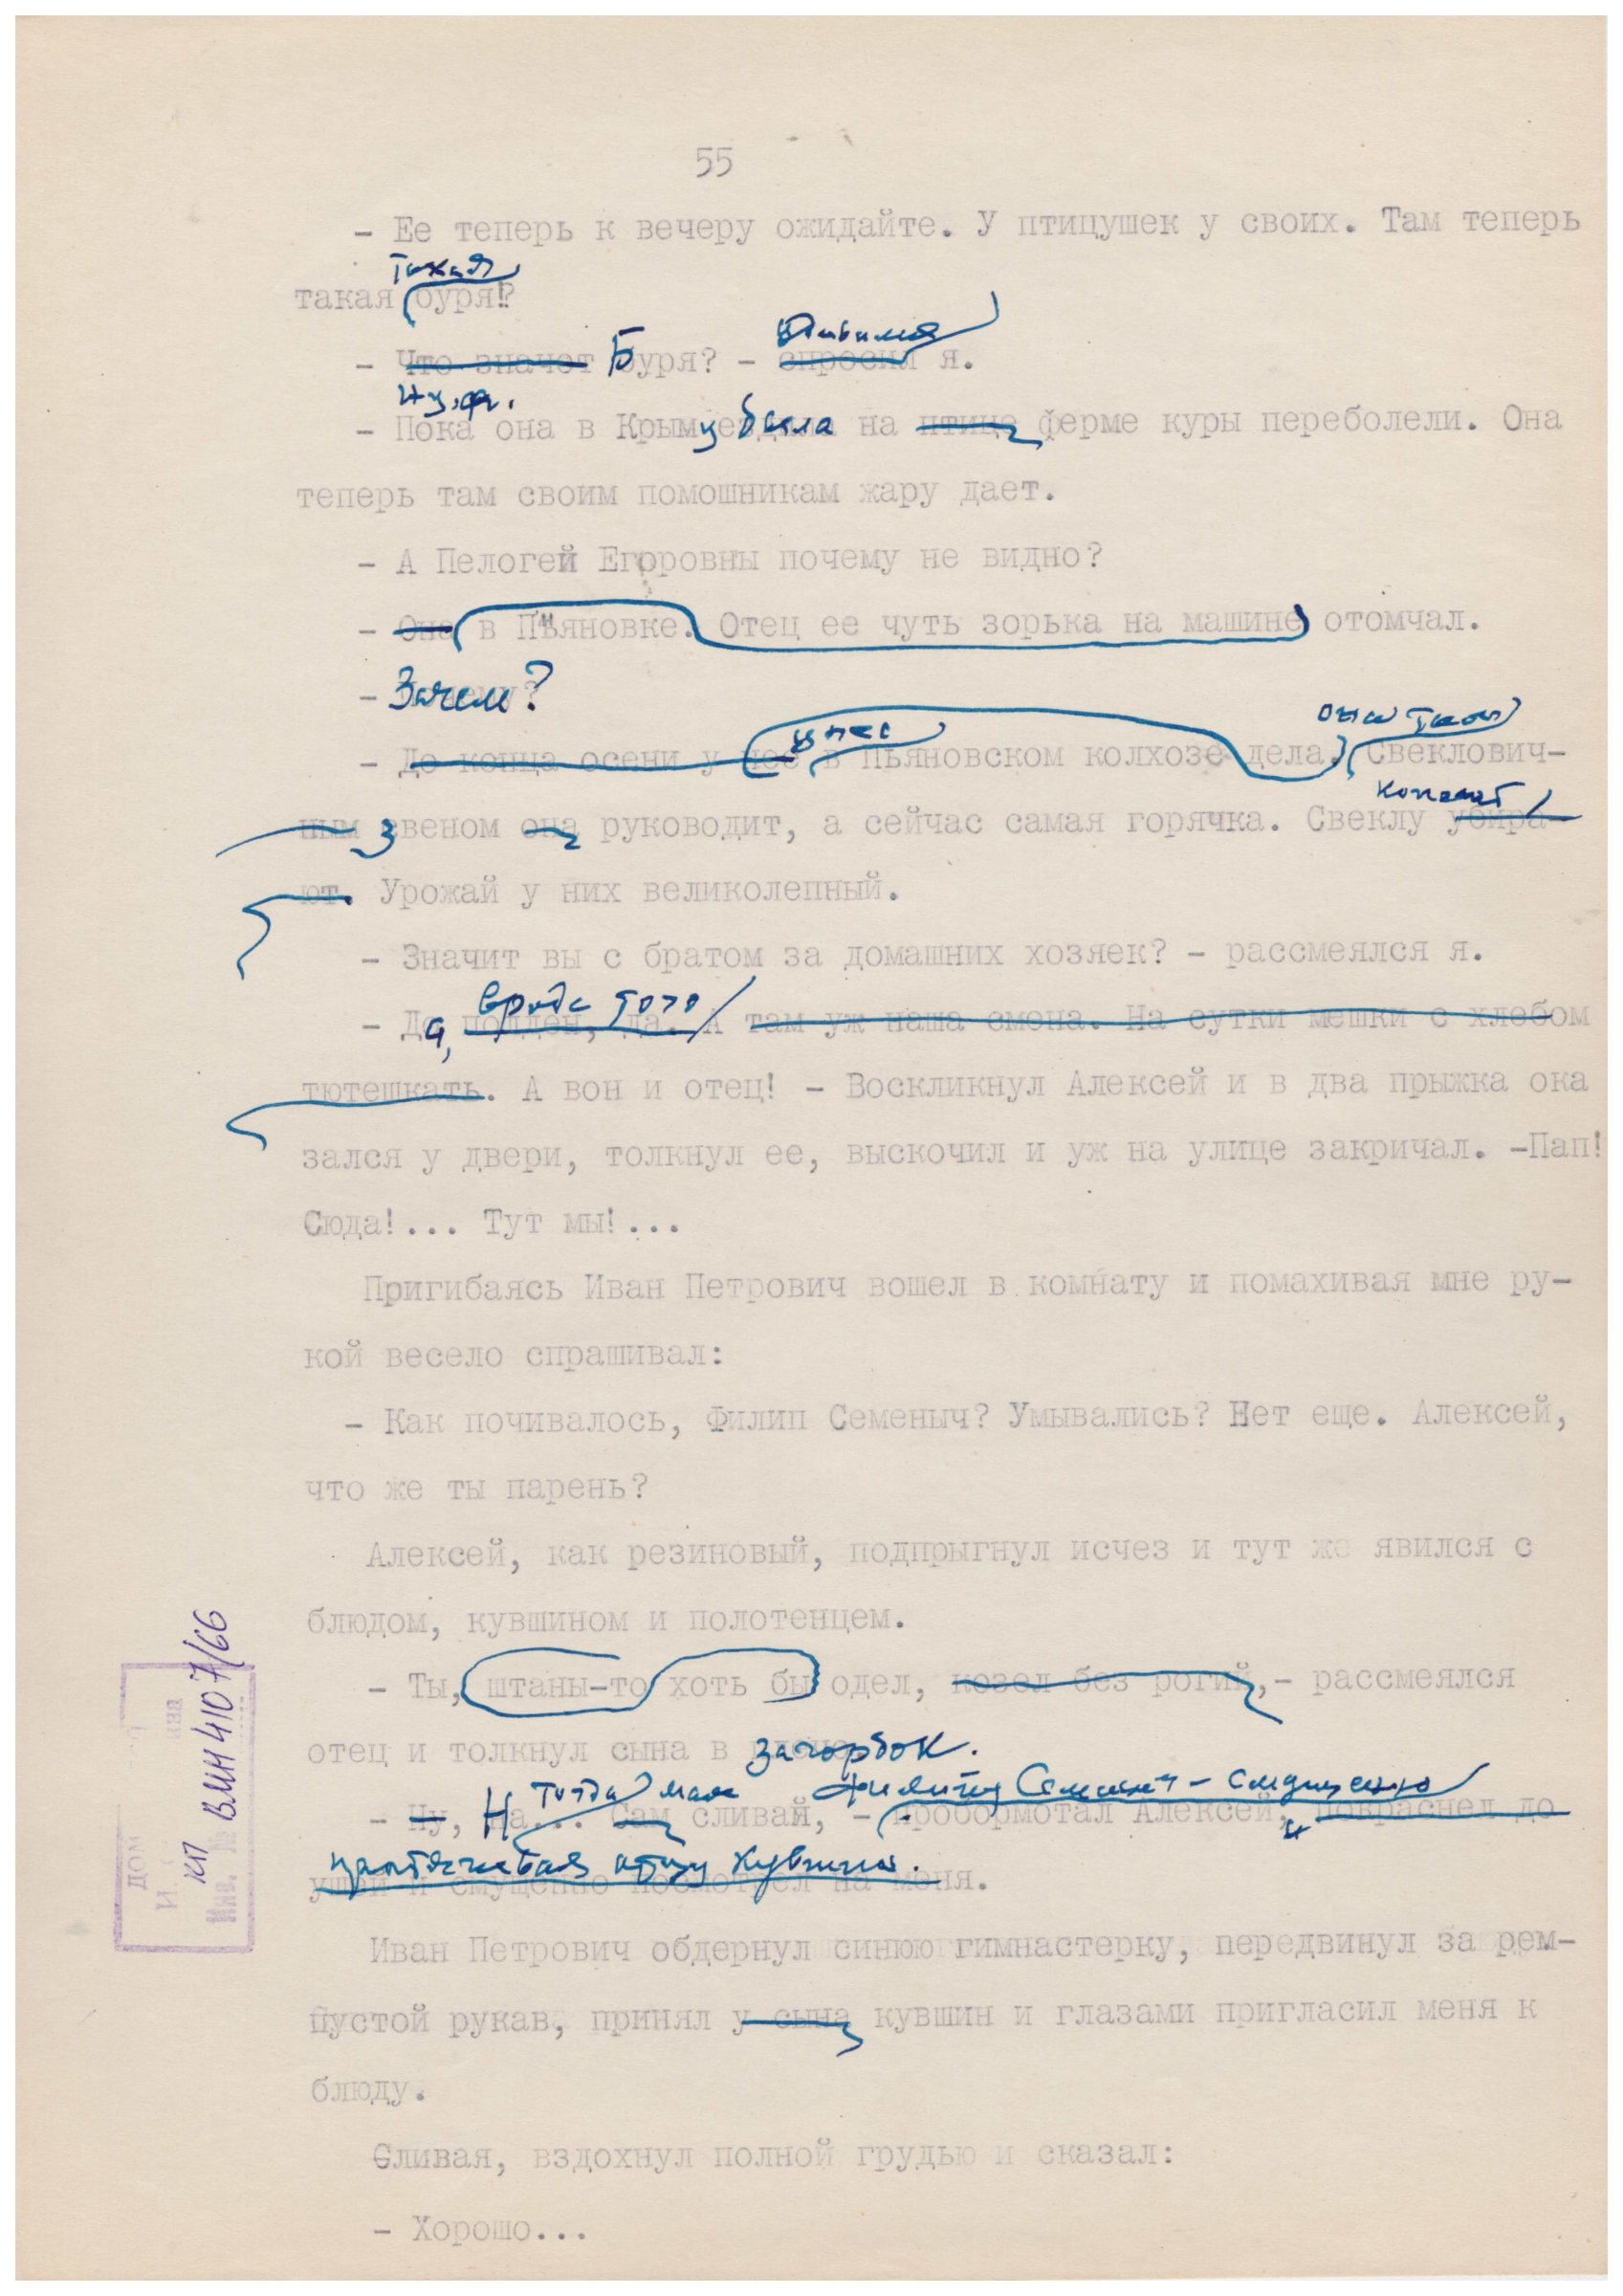 55
- Ее теперь к вечеру ожидайте. У птицушек у своих. Там теперь
такая
такая буря!?
удивился
- Что значет Буря? - спросил я.
- Пока она в Крыму была на птице ферме куры переболели. Она
теперь там своим помошникам жару дает.
- А Пелогей Егоровны почему не видно?
- Она в Пьяновке. Отец ее чуть зорька на машине отомчал.
- Зачем?
у нее
она там
- До конца осени у нее в Пьяновском колхозе дела. Свеклович-
копают
ным звеном она руководит, а сейчас самая горячка. Свеклу убира-
ют. Урожай у них великолепный.
- Значит вы с братом за домашних хозяек? - рассмеялся я.
вроде того
- Да, полден, да. А там уж наша смена. На сутки мешки с хлебом
тютешкать. А вон и отец! - Воскликнул Алексей и в два прыжка ока
зался у двери, толкнул ее, выскочил и уж на улице закричал. -Пап!
Сюда!... Тут мы!...
Пригибаясь Иван Петрович вошел в комнату и помахивая мне ру-
кой весело спрашивал:
- Как почивалось, Филип Семеныч? Умывались? Нет еще. Алексей,
что же ты парень?
Алексей, как резиновый, подпрыгнул исчез и тут же явился с
блюдом, кувшином и полотенцем.
- Ты, штаны-то хоть бы одел, козел без рогий,- рассмеялся
отец и толкнул сына в загорбок.
тогда сам Филипу Семеныч - смущенно
- Ну, На... Сам сливай, - пробормотал Алексей, покраснел до
протягивая отцу кувшин.
ушей и смущенно посмотрел на меня.
Иван Петрович обдернул синюю гимнастерку, передвинул за рем-
пустой рукав, принял у сына кувшин и глазами пригласил меня к
блюду.
Сливая, вздохнул полной грудью и сказал:
- Хорошо...
ДОМ
Инв. №
КП ВМН 4107/66